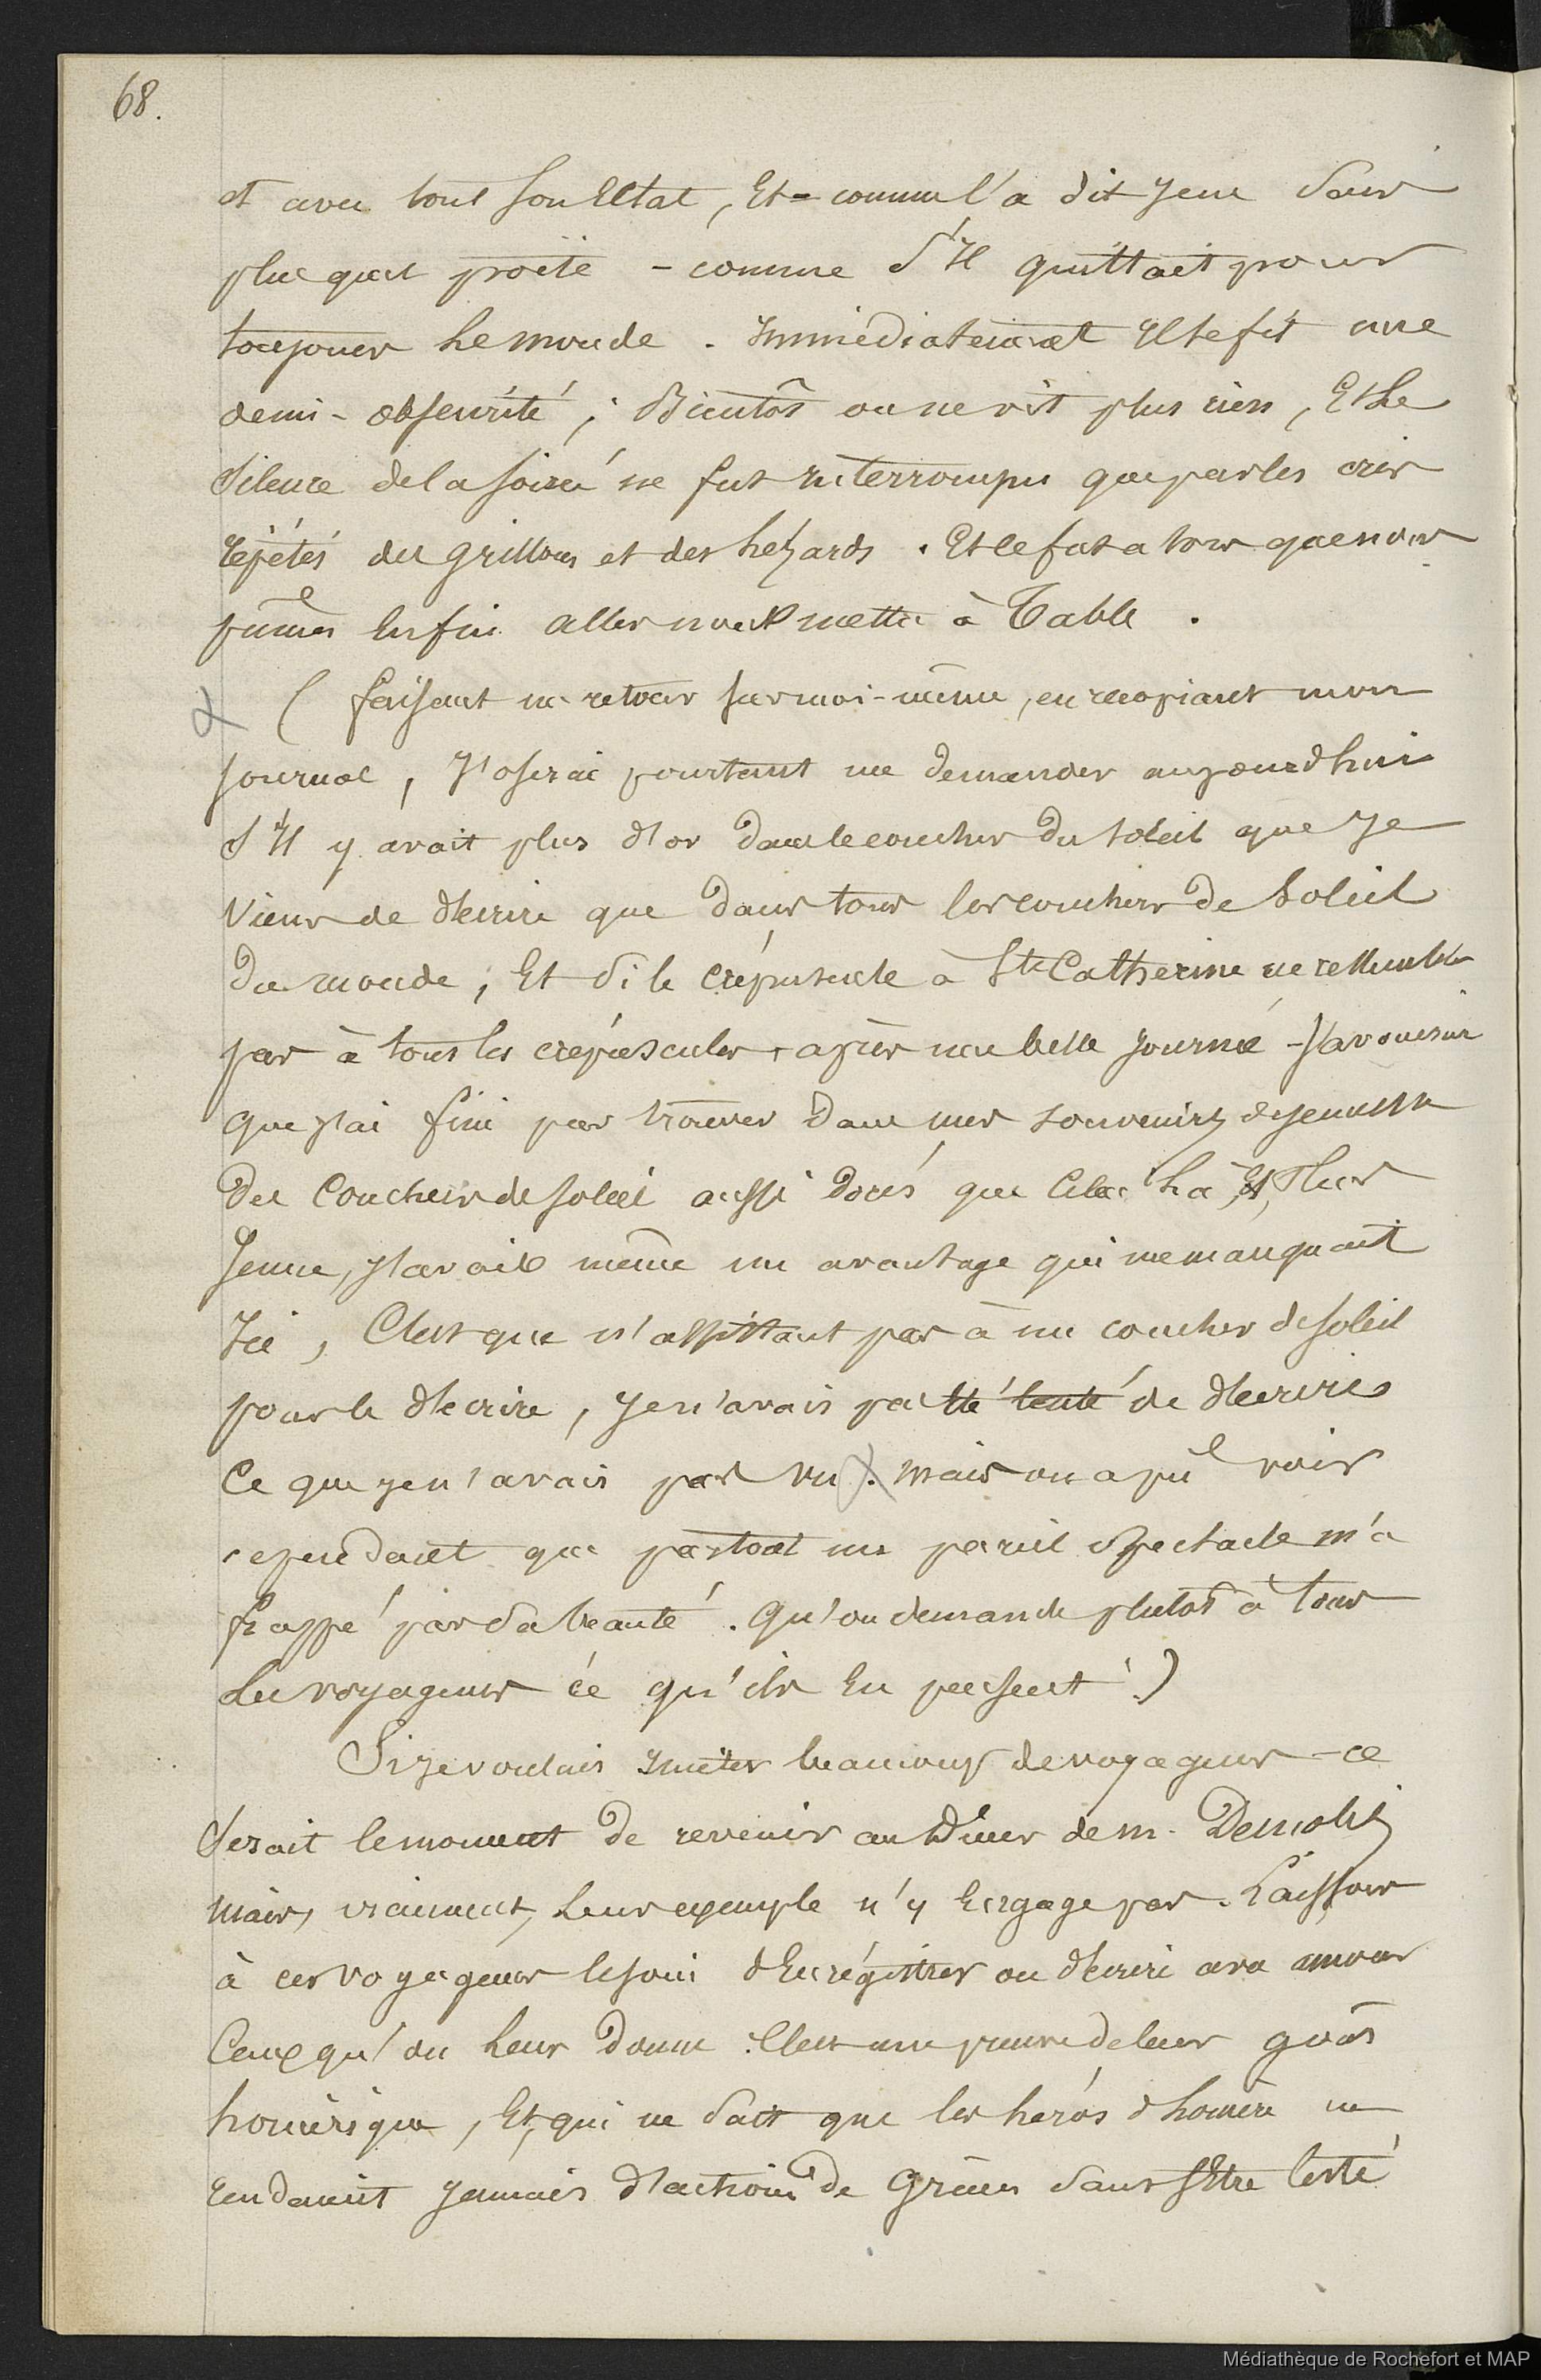 68.
et avec tout son Eclat, Et - comme l'a dit je ne sais
plus quel poëte - comme s'Il quittait pour
toujours le monde. Immédiatement Il se fit une
demi-obscurité ; Bientôt on ne vit plus rien, Et le
Silence de la soirée ne fut interrompu que par les cris
répétés des grillons et des Lézards. Et ce fut alors que nous
pûmes Enfin aller nous mettre à Table.
( faisant un retour sur moi-même, en recopiant mon
journal, J'oserai pourtant me demander aujourd'hui
s'Il y avait plus d'or dans le coucher du soleil que Je
viens de décrire que dans tous les couchers de soleil
du monde, Et Si le crépuscule à Ste Catherine ne ressemble
pas à tous les crépuscules, après une belle journée - J'avouerai
que j'ai fini par trouver dans mes souvenirs de jeunesse
des Couchers de soleil aussi dorés que Celui-Là, Et, Plus
Jeune, j'avais même un avantage qui me manquait
Ici, C'est que n'assistant pas à un coucher de soleil
pour le décrire, je n'avais pas été tenté de décrire
Ce que je n'avais pas vu). mais on a pu voir
cependant que partout un pareil spectacle m'a
frappé par sa beauté. Qu'on demande plutôt à tous
les voyageurs ce qu'ils En pensent !)
Si je voulais Imiter beaucoup de voyageurs - ce
serait le moment de revenir au Dîner de m. Demolis
mais, vraiment, Leur exemple n'y Engage pas. Laissons
à ces voyageurs le soin d'Enrégistrer ou décrire avec amour
Ceux qu'on Leur donne. C'est une preuve de leur goût
homérique, Et, qui ne sait que les héros d'homère ne
rendaient jamais d'actions de Grâces sans s'Etre lesté
Médiathèque de Rochefort et MAP